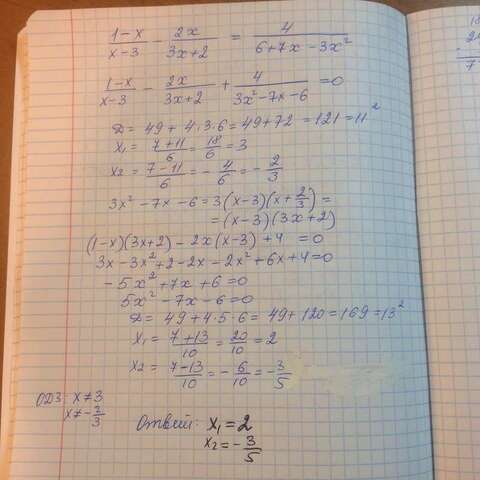 (1-x)/(x-3) - 2x/(3x+2) = 4/(6+7x-3x²)
(1-x)/(x-3) - 2x/(3x+2) + 4/(3x²-7x-6) = 0
D = 49 + 4·3·6 = 49+72 = 121 = 11²
x₁ = (7+11)/6 = 18/6 = 3
x₂ = (7-11)/6 = -4/6 = -2/3
3x²-7x-6 = 3(x-3)(x+2/3) =
= (x-3)(3x+2)
(1-x)(3x+2) - 2x(x-3) + 4 = 0
3x-3x²+2-2x-2x²+6x+4=0
-5x²+7x+6=0
5x²-7x-6=0
D = 49+4·5·6 = 49+120=169=13²
x₁ = (7+13)/10 = 20/10 = 2
x₂ = (7-13)/10 = -6/10 = -3/5
ОДЗ: x≠3
x≠-2/3
Ответ: x₁=2
x₂=-3/5